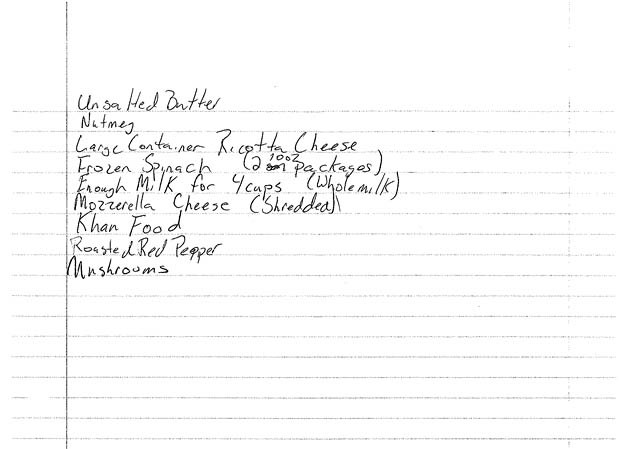 Unsalted Butter
Nutmeg
Large Container Ricotta Cheese
Frozen Spinach (2 10oz packages)
Enough Milk for 4 cups (Whole milk)
Mozzerella Cheese (Shredded)
Khan Food
Roasted Red Pepper
Mushrooms